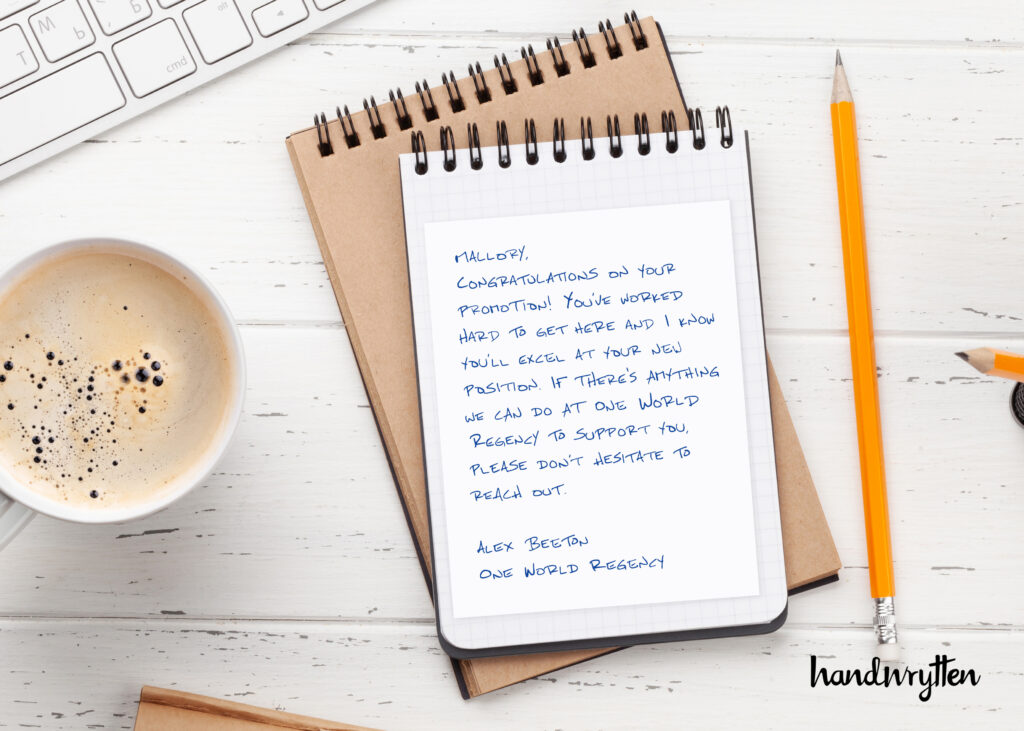 T
M
Ь
cmd
MALLORY,
CONGRATULATIONS ON YOUR
PROMOTION! YOU'VE WORKED
HARD TO GET HERE AND I KNOW
YOU'LL EXCEL AT YOUR NEW
POSITION. IF THERE'S ANYTHING
WE CAN DO AT ONE WORLD
REGENCY TO SUPPORT YOU,
PLEASE DON'T HESITATE TO
REACH OUT.
ALEX BEETON
ONE WORLD REGENCY
handwrytten